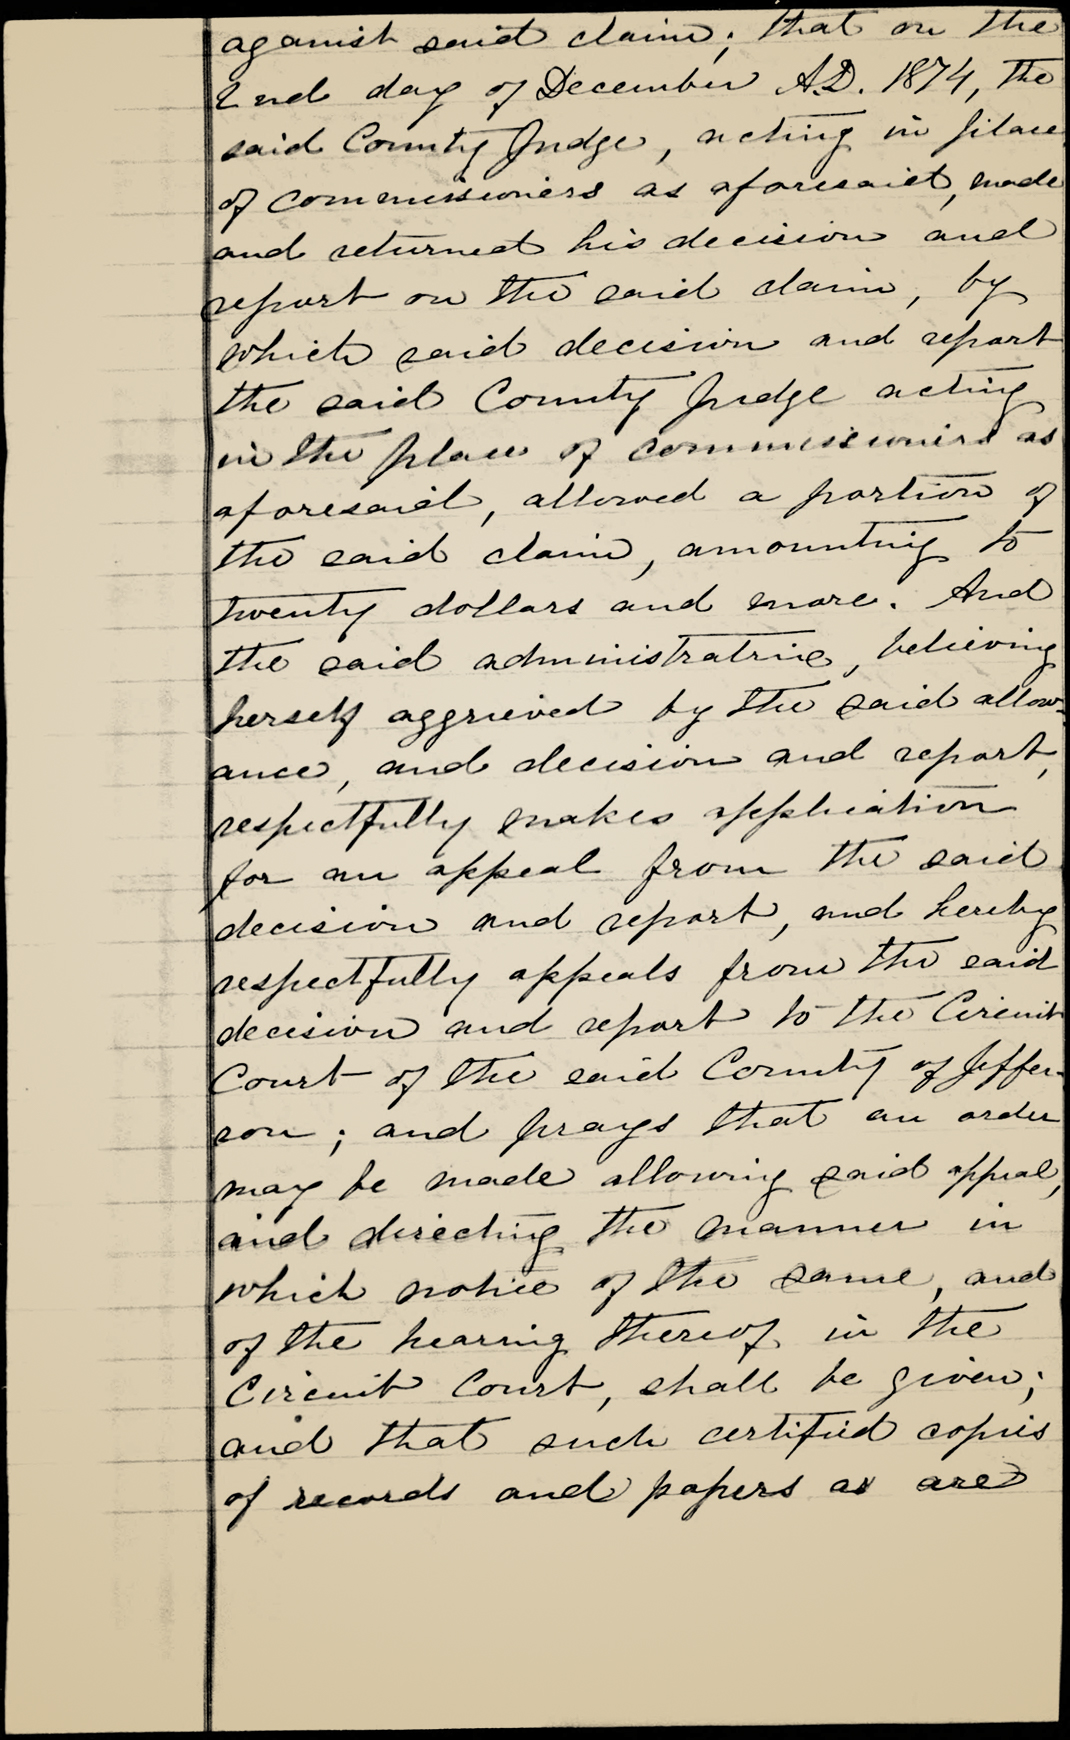 against said claim; that on the
2nd day of December A.D. 1874, the
said County Judge, acting in place
of commissioners as aforesaid, made
and returned his decision and
report on the said claim, by
which said decision and report
the said County Judge acting
in the place of commissioners as
aforesaid, allowed a portion of
the said claim, amounting to
twenty dollars and more. And
the said administratrix, believing
herself aggrieved by the said allow-
ance, and decision and report,
respectfully makes application
for an appeal from the said
decision and report, and hereby
respectfully appeals from the said
decision and report to the Circuit
Court of the said County of Jeffer-
son; and prays that an order
may be made allowing said appeal,
and directing the manner in
which notice of the same, and
of the hearing thereof in the
Circuit Court, shall be given;
and that such certified copies
of records and papers as are